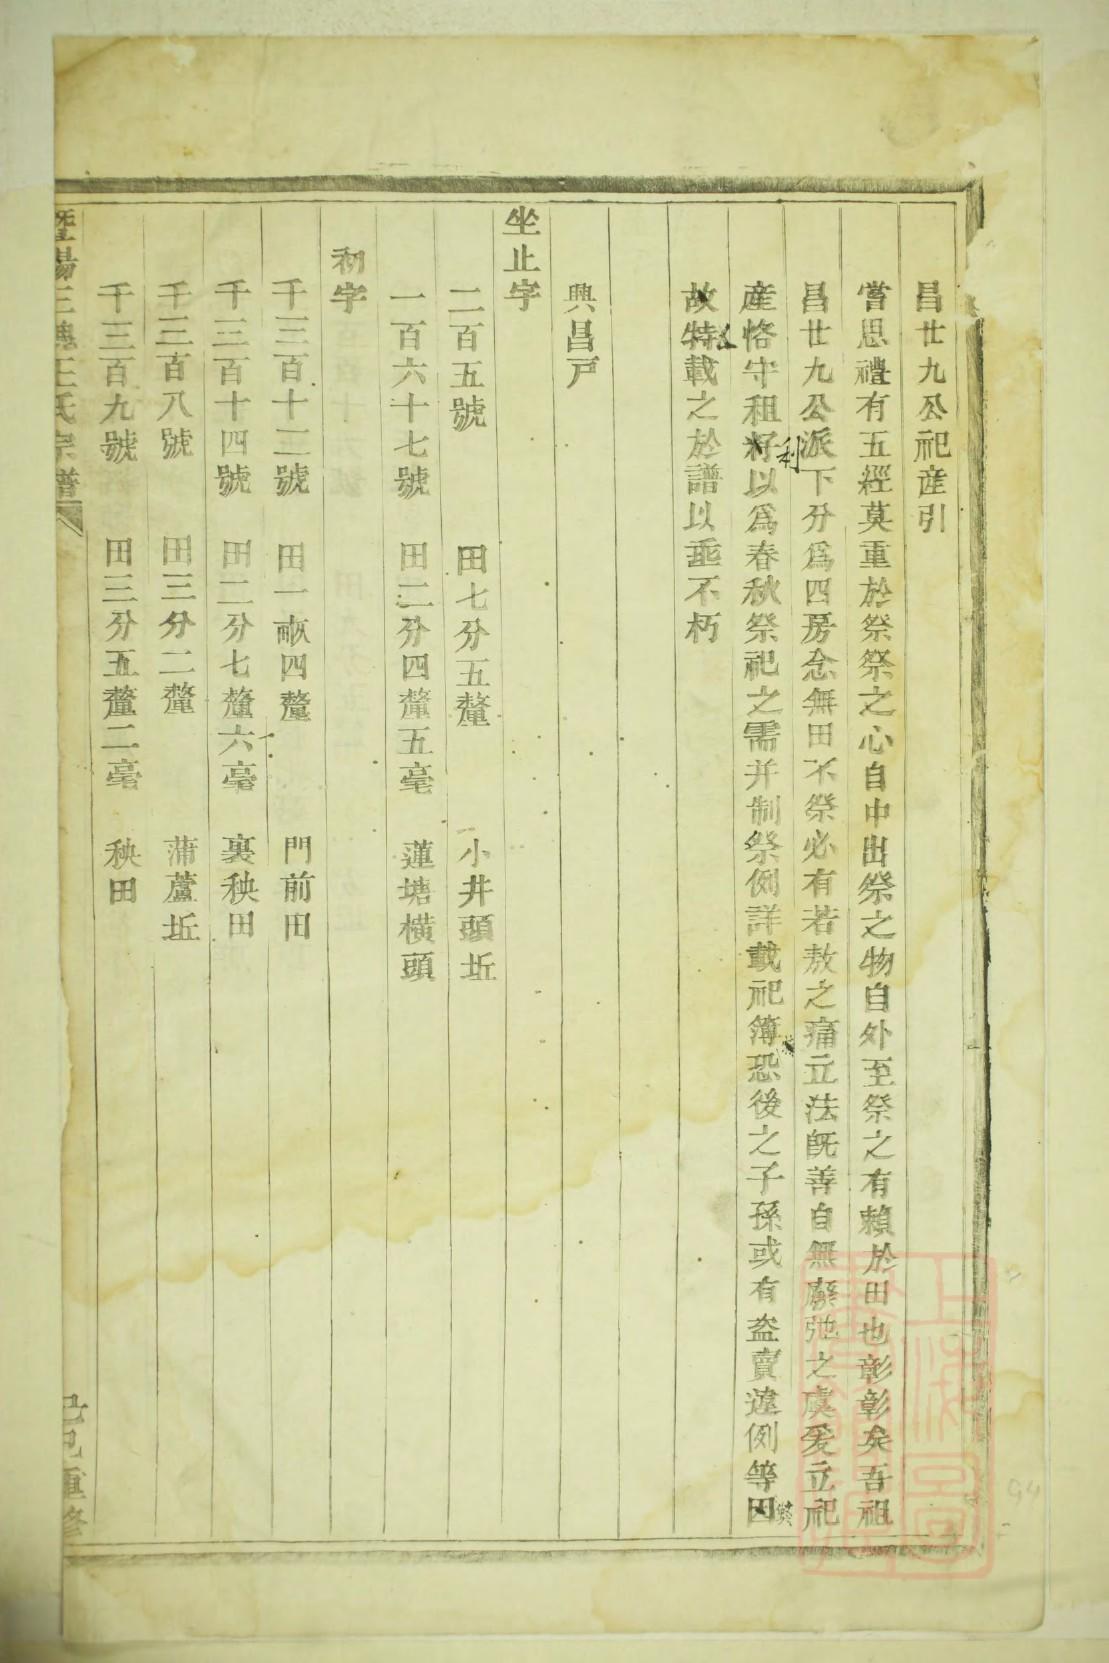 昌廿九公祀産引
嘗思禮有五經莫重於祭祭之心自中出祭之物自外至祭之有賴於田也彰彰矣吾祖
昌廿九公派下分爲四房念無田不祭必有若敖之痛立法既善自無廢弛之虞爰立祀
産恪守租籽以爲春秋祭祀之需并制祭例詳載祀簿恐後之子孫或有盗賣違例等因
利
弊
故特載之於譜以垂不朽
興昌戸
坐止字
二百五號 田七分五釐 小井頭坵
一百六十七號 田二分四釐五毫 蓮塘横頭
初字
千三百十三號 田一畝四釐 門前田
千三百十四號 田二分七釐六毫 裏秧田
千三百八號 田三分二釐 蒲蘆坵
千三百九號 田三分五釐二毫 秧田
暨陽 王氏宗譜
己巳重修
上海圖書館藏
94